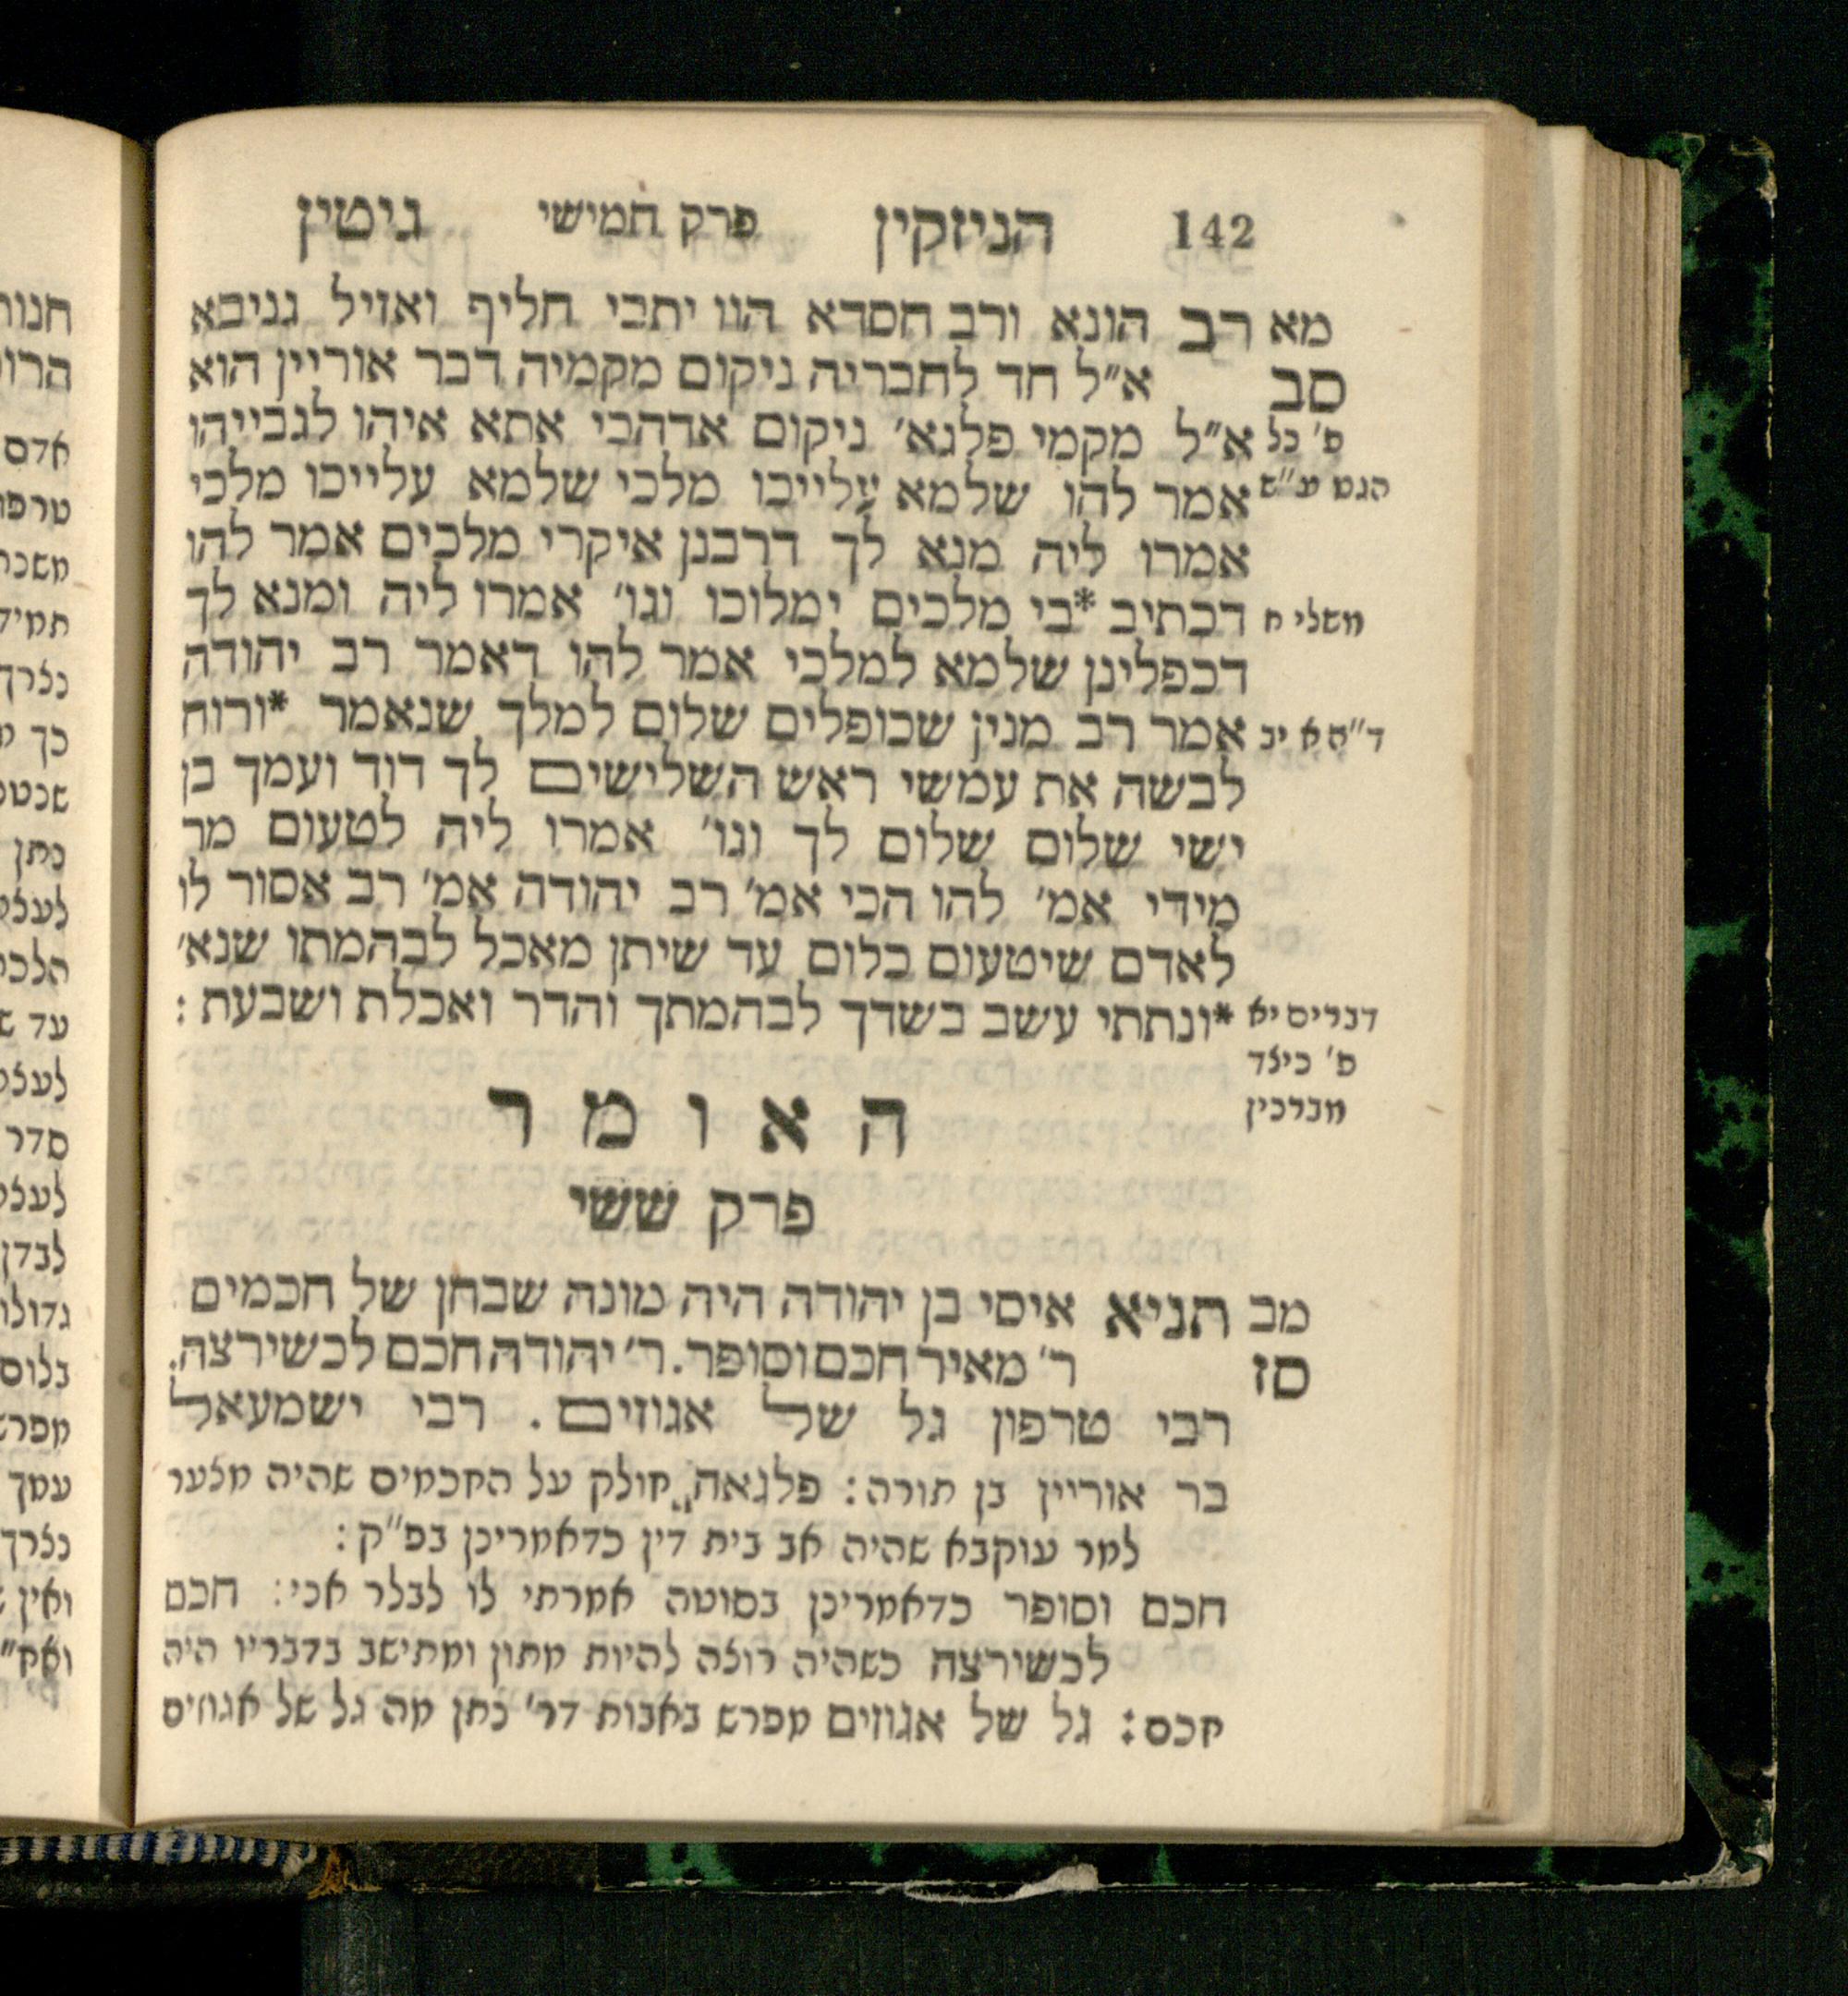 142 הניזקין פרק חמישי גיטין
מא רב הונא ורב חסדא הוו יתבי חליף ואזיל גניבא
סב א״ל חד לחבריה ניקום מקמיה דבר אוריין הוא
ס׳ כל א״ל מקמי פלגא׳ ניקום אדהכי אתא איהו לגבייהו
הגט ע״ש אמר להו שלמא עלייכו מלכי שלמא עלייכו מלכי
אמרו ליה מנא לך דרבנן איקרי מלכים אמר להו
משלי ח דכתיב *בי מלכים ימלוכו וגו׳ אמרו ליה ומנא לך
דכפלינן שלמא למלכי אמר להו דאמר רב יהודה
ד״הא יב אמר רב מנין שכופלים שלום למלך שנאמר *ורוח
לבשה את עמשי ראש השלישים לך דוד ועמך בן
ישי שלום שלום לך וגו׳ אמרו ליה לטעום מר
מידי אמ׳ להו הכי אמ׳ רב יהודה אמ׳ רב אסור לו
לאדם שיטעום כלום עד שיתן מאכל לבהמתו שנא׳
דברים יא *ונתתי עשב בשדך לבהמתך והדר ואכלת ושבעת :
ס׳ כיצד
מברכין
האומר
פרק ששי
מב תניא איסי בן יהודה היה מונה שבחן של חכמים
סז ר׳ מאיר חכם וסופר. ר׳ יהודה חכם לכשירצה.
רבי טרפון גל של אגוזים. רבי ישמעאל
בר אוריין בן תורה: פלגאה חולק על החכמים שהיה מצער
למר עוקבא שהיה אב בית דין כדאמרינן בפ״ק:
חכם וסופר כדאמרינן בסוטה אמרתי לו לבלר אני: חכם
לכשירצה כשהיה רוצה להיות מתון ומתישב בדבריו היה
חכם: גל של אגוזים מפרש באבות דר׳ נתן מה גל של אגוזים